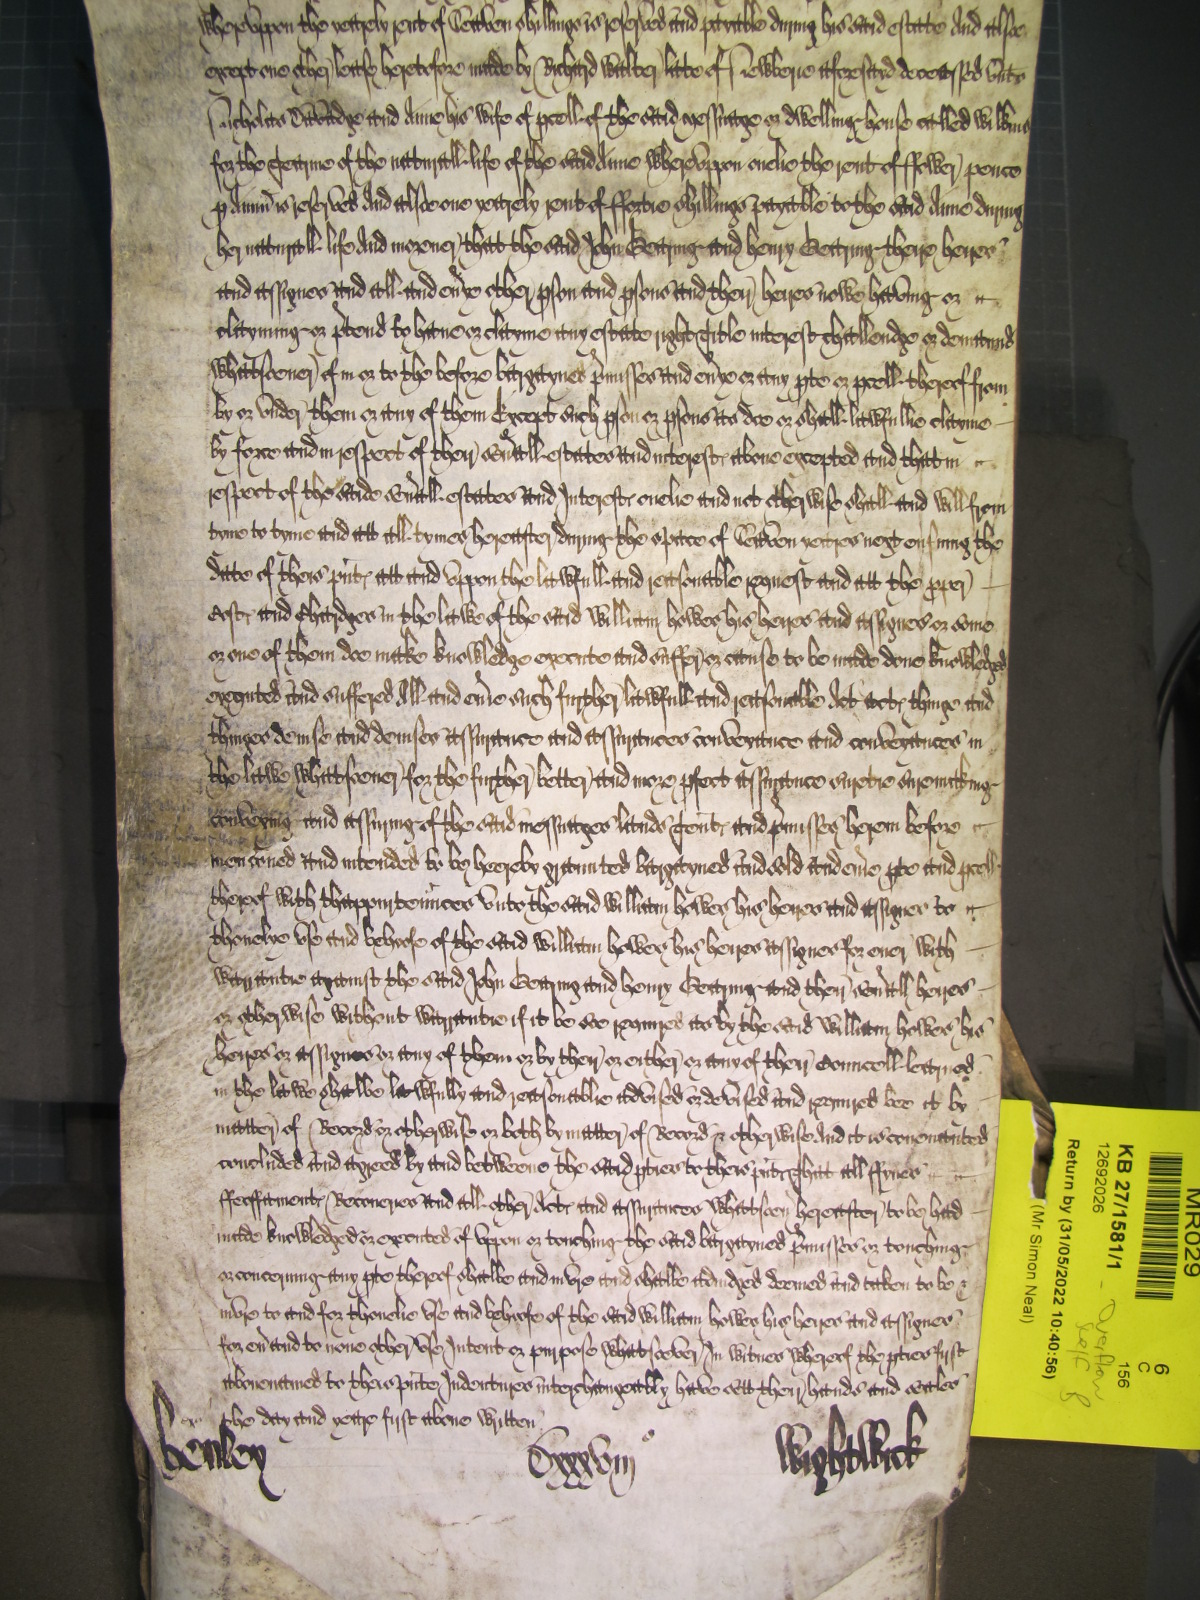 whereuppon the yearely rent of Seaven shillings is reserved and payable during his said estate And alsoe
except one other lease heretofore made by Richard Walter late of Newberie aforesayd deceassed unto
Nicholas and Anne his wife of pcell of the said messuage or dwelling house called Wilkins
for the Tearme of the naturall life of the said Anne whereuppon onelie the rent of ffower pence
p Annu is reserved And alsoe one yearely rent of ffortie shillings payable to the said Anne during
her naturall life And moreover that the said John Gearing and henry Gearing theire heires
and assignes and all and everye other pson and psons and their heires nowe having or
clayming or ptend to have or clayme any estate right Title interest challendge or demaund
whatsoever of in or to the before bargayned pmisses and everye or any pte or pcell thereof from
by or under them or any of them Except such pson or psons as doe or shall lawfullie clayme
by force and in respect of their severall estates and interests above excepted and that in
respect of the saide severall estates and Interests onelie and not otherwise shall and will from
tyme to tyme and att all tymes hereafter during the space of Seaven yeares next ensuing the
date of theis pnts att and uppon the lawfull and reasonable request and att the pper
costs and Chardges in the lawe of the said William howes his heires and assignes or some
or one of them doe make knowledge execute and suffer or cause to be made done knowledged
executed and suffered All and everie such further lawfull and reasonable Act acts thinge and
thinges demise and demises assurance and assurances conveyance and conveyances in
the lawe whatsoever for the further better and more pfect assurance suertie suremaking
conveying and assuring of the said messuages lands Tents and pmisses herein before
menconed and intended to be heereby graunted bargayned and sold and everie pte and pcell
thereof with thappurtennces unto the said William howes his heires and assignes to
thonelye use and behoofe of the said William howes his heires assignes for ever with
warrantie against the said John Gearing and henry Gearing and their severall heires
or otherwise without warrantie if it be soe required as by the said William howes his
heires or assignes or any of them or by their or either or any of their Councell learned
in the lawe shalbe lawfully and reasonablie advised or devised and required bee it by
matter of Record or otherwise or both by matter of Record & otherwise And it is covenanted
concluded and agreed by and betweene the said pties to theis pnts That all ffynes
ffeoffments Recoveries and all other Acts and assurances whatsoever hereafter to be had
made knowledged or executed of uppon or touching the said bargayned pmisses or touching
or concerning any pte thereof shalbe and inure and shalbe adiudged deemed and taken to be &
inure to and for thonelie use and behoofe of the said William howes his heires and assignes
for ever and to none other use Intent or purpose whatsoever In witnes whereof the pties first
abovenamed to theis pnte Indentures interchangeably have sett their hands and seales
the day and yeare first above written
henley Cxxxviij Wightwick
MR029
6
C
156
KB 27/1581/1
12692026
Overflow
Return by (31/05/2022 10:40:56)
(Mr Simon Neal)